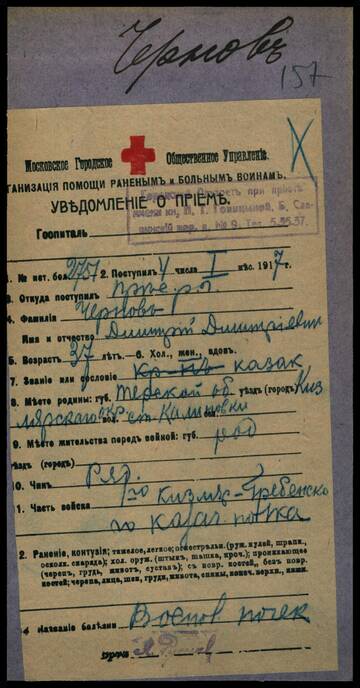 Черновъ
157
Московское Городское Общественное Управленіе.
ГАНИЗАЦІЯ ПОМОЩИ РАНЕНЫМЪ и БОЛЬНЫМЪ ВОИНАМЪ.
УВѢДОМЛЕНІЕ О ПРІЕМѢ.
Госпиталь
№ 9. Тел. 5.55.37.
1. № ист. бол. 2751 2. Поступил 4 числа I мѣс. 1917 г.
3. Откуда поступил
4. Фамилія Черновъ
Имя и отчество Дмитрій Дмитріевич
5. Возраст 37 лѣт. 6. Хол., жен., вдов.
7. Званіе или сословіе казак
8. Мѣсто родины: губ. Терской об уѣзд (город) Киз
лярскаго окр вол. ст. Калиновки
9. Мѣсто жительства перед войной: губ. род
уѣзд (город)
10. Чин Ряд.
11. Часть войска 1го Кизл.-Гребенско
го казач полка
2. Раненіе, контузія; тяжелое, легкое; огнестрѣльн. (руж. пулей, шрапн.,
оскол. снаряда); хол. оруж. (штык, шашка, проч.); проникающее
(череп, грудь, живот, сустав); с повр. костей, без повр.
костей; черепа, лица, шеи, груди, живота, спины, конеч. верхн. нижн.
4 Названіе болѣзни Воспов почек
врач